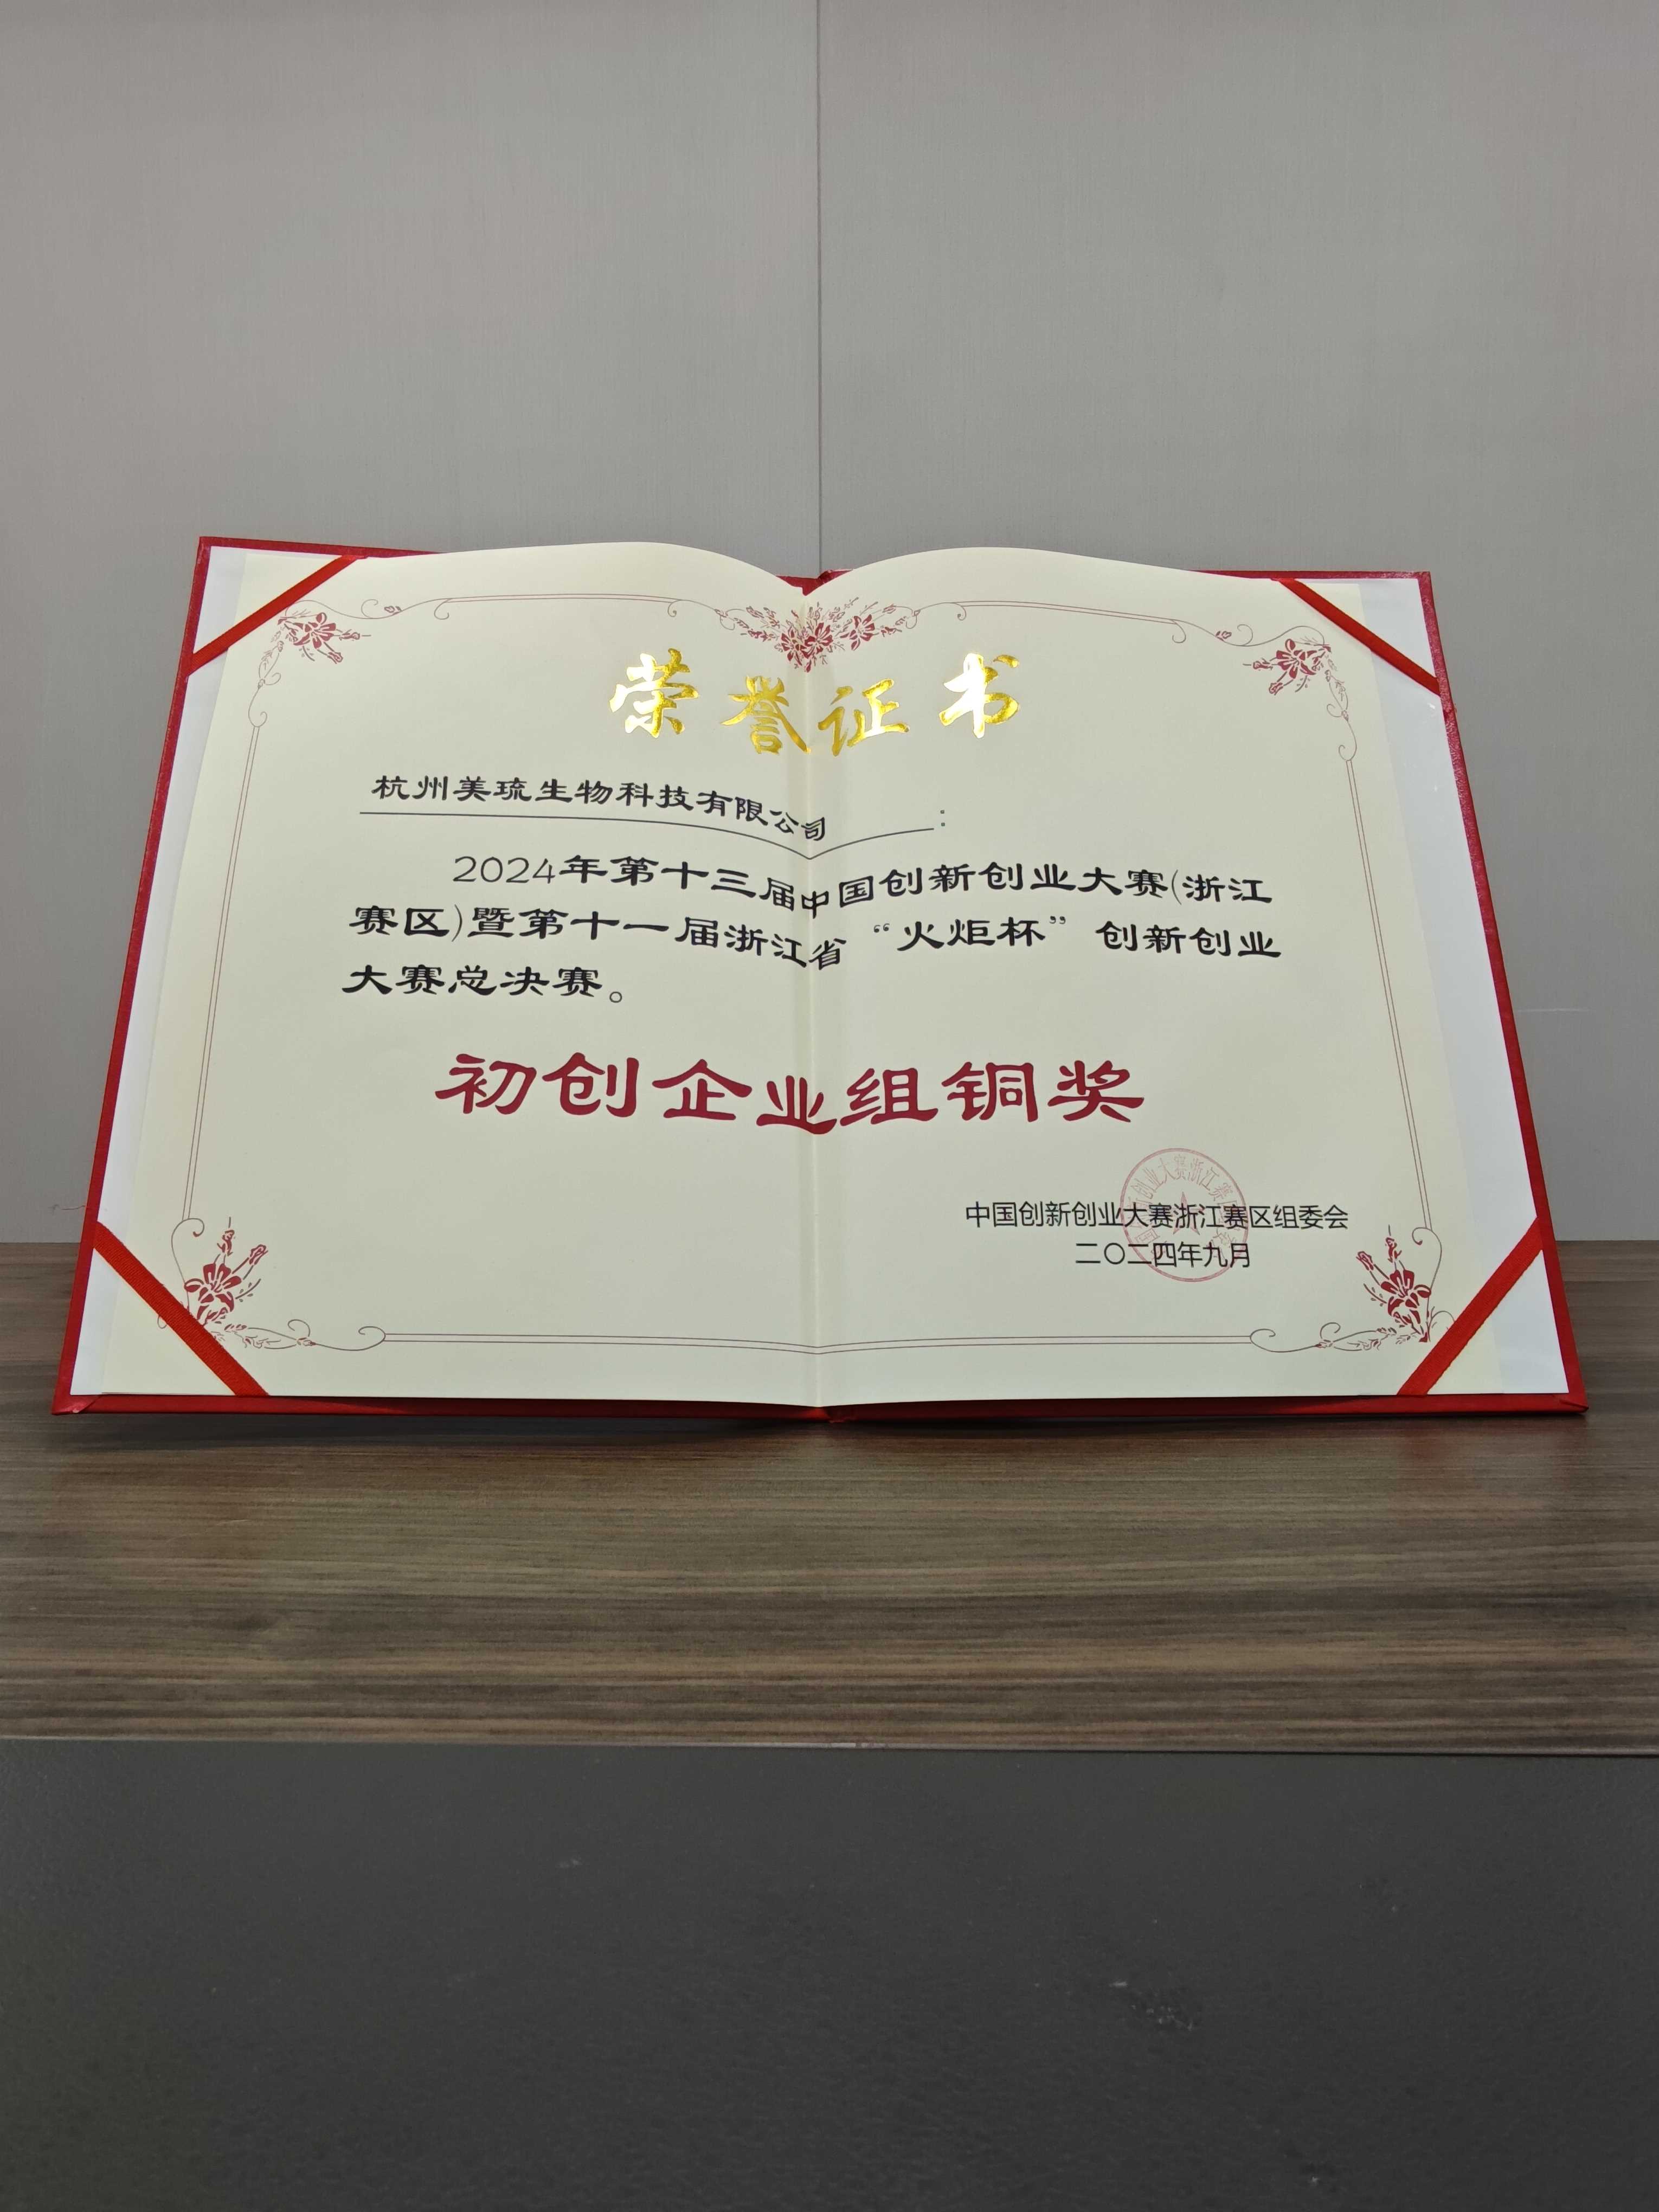 荣誉证书
杭州美琉生物科技有限公司：
2024年第十三届中国创新创业大赛(浙江
赛区)暨第十一届浙江省“火炬杯”创新创业
大赛总决赛。
初创企业组铜奖
中国创新创业大赛浙江赛区组委会
二〇二四年九月